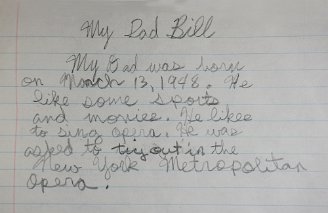 My Dad Bill
My Dad was born
on March 13, 1948. He
like some sports
and movies. He likes
to sing opera. He was
asked to try out in the
New York Metropolitan
Opera.